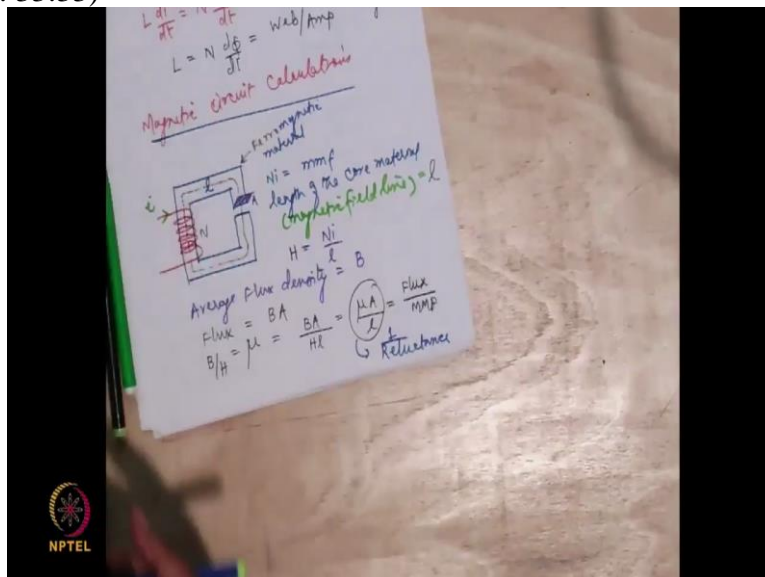 L di/dt = N dt
L = N dφ/di = Wab/Amp
Magnetic circuit calculations
Ferromagnetic
material
Ni = mmf
length of the core material
(magnetic field line) = l
i
l
A
N
H = Ni/l
Average Flux density = B
Flux = BA
B/H = μ = BA/Hl = μA/l = Flux/MMF
1/Reluctance
NPTEL